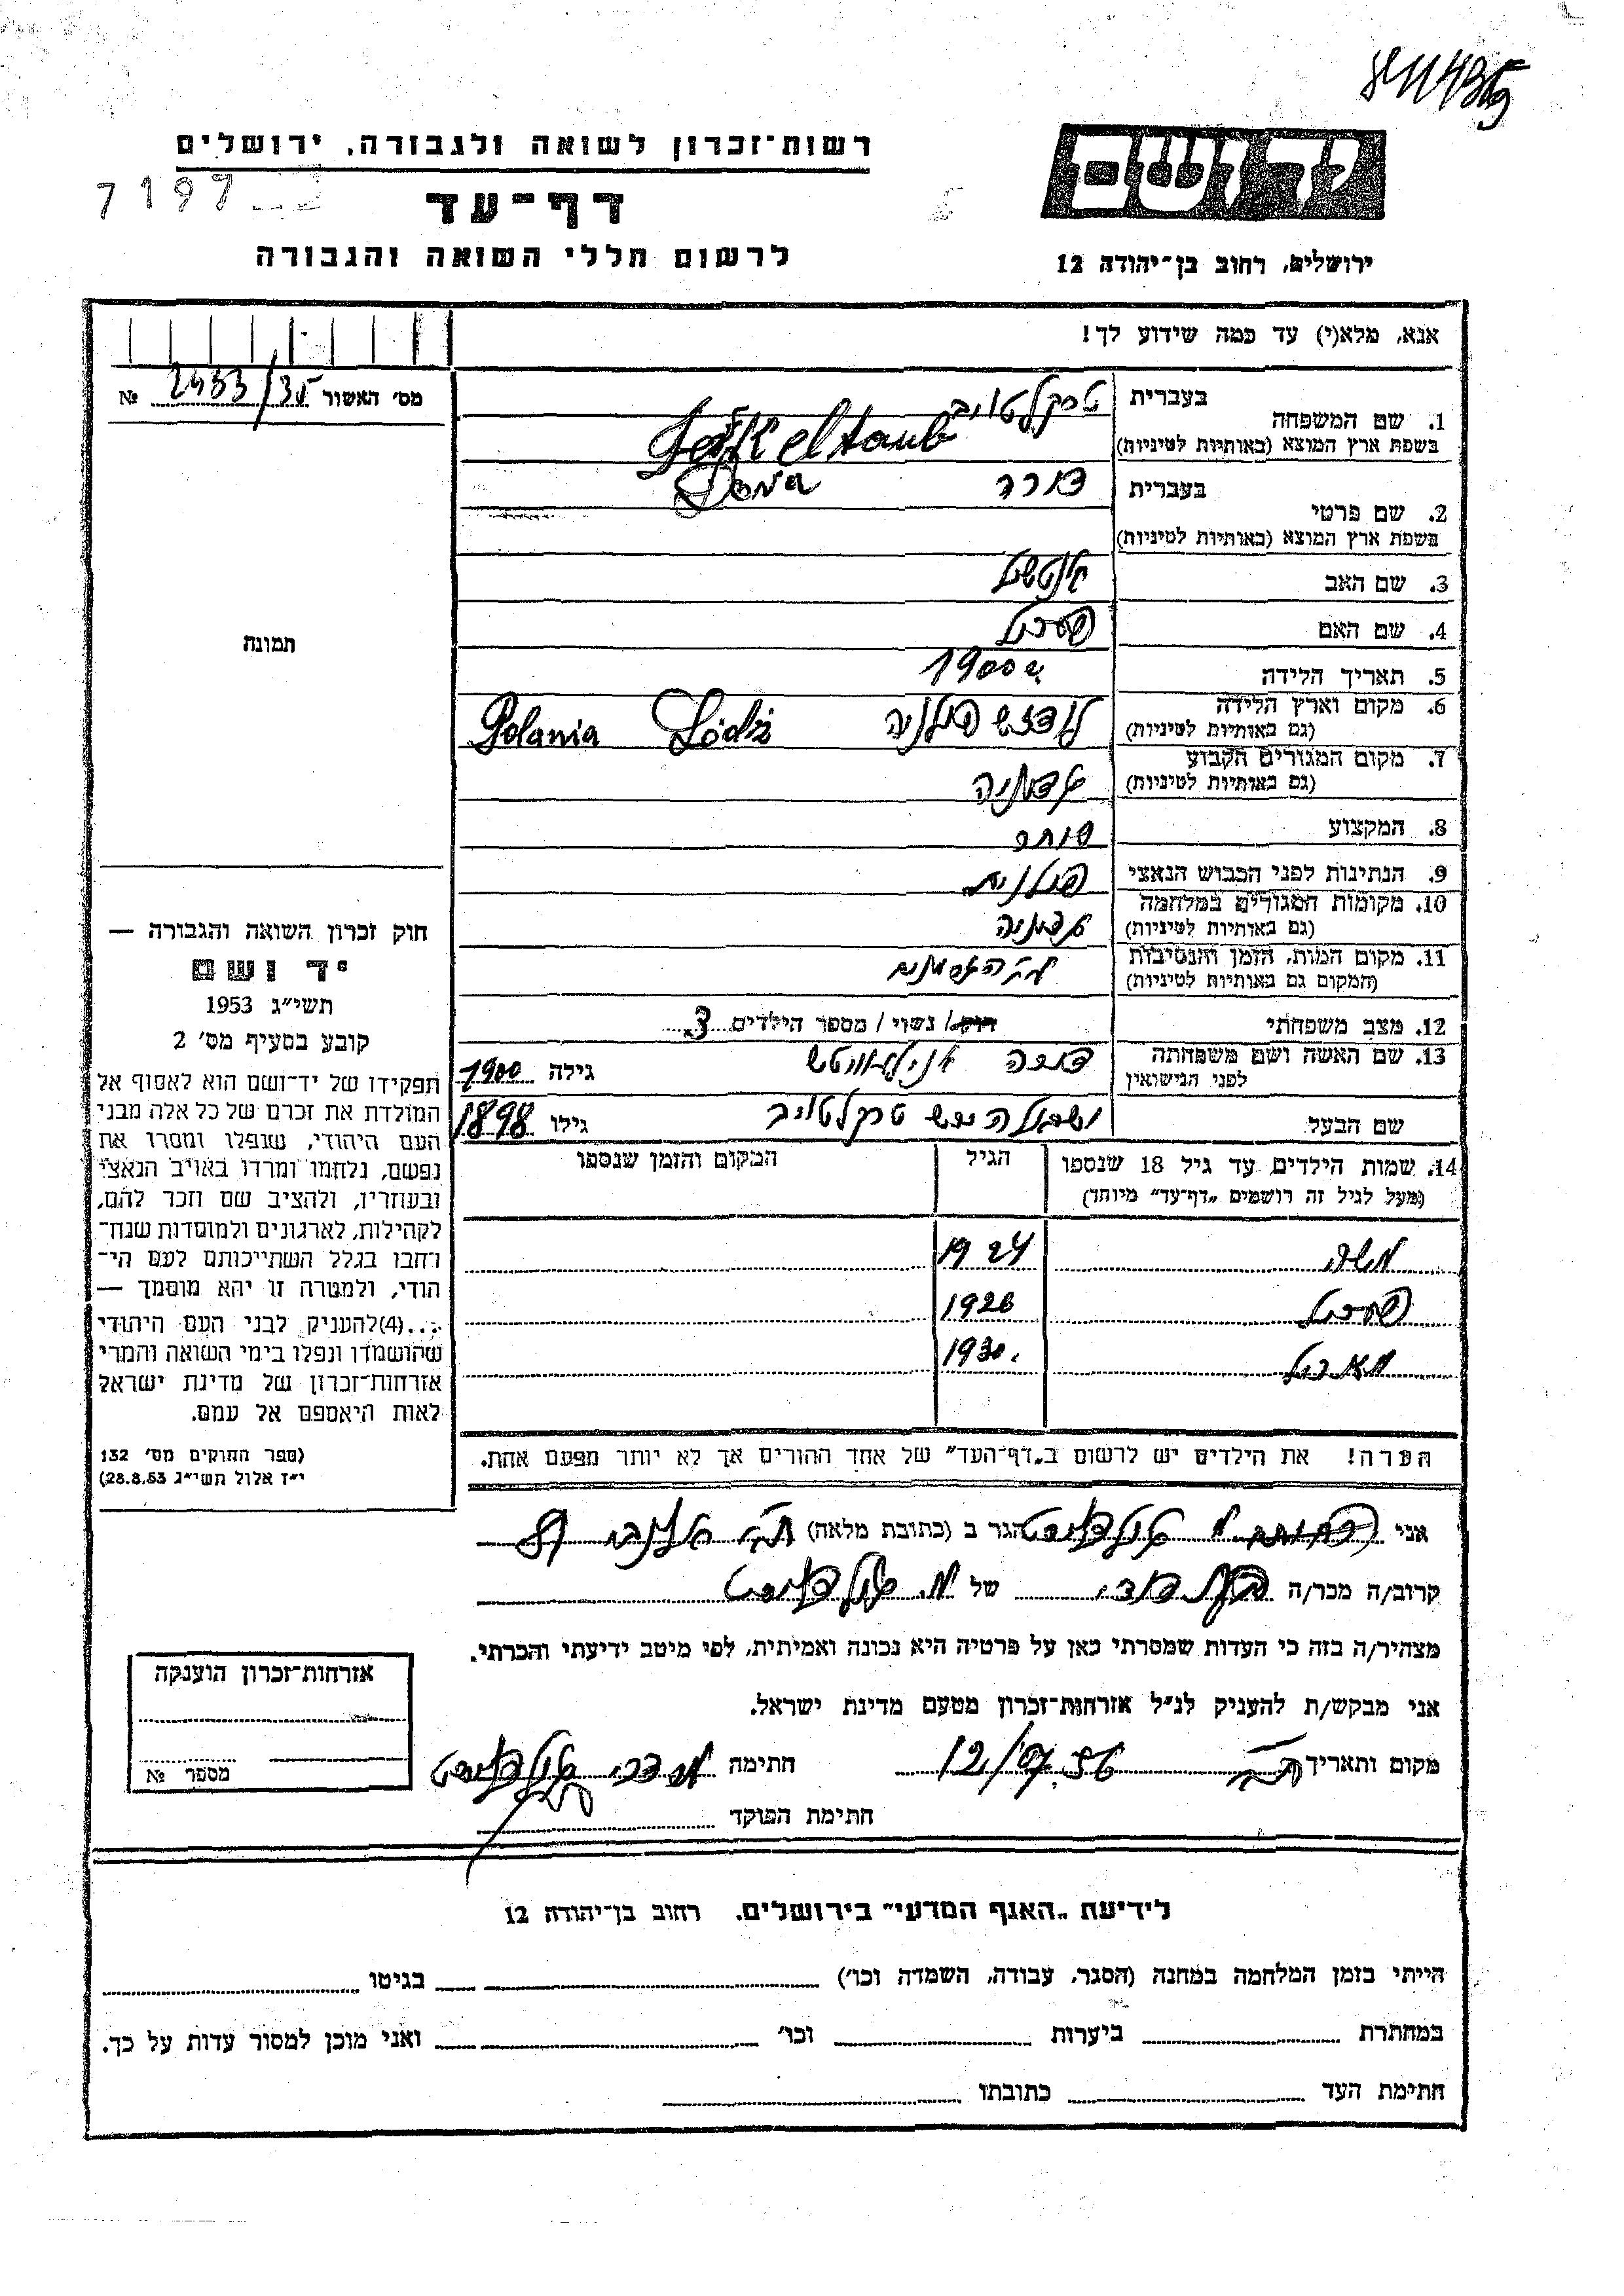 רשות־זכרון לשואה ולגבורה, ירושלים
7197
דף־עד
לרשום חללי השואה והגבורה
יד ושם
ירושלים, רחוב בן־יהודה 12
אנא, מלא(י) עד כמה שידוע לך!
מס׳ האשור 2433/35 №
תמונה
חוק זכרון השואה והגבורה —
יד ושם
תשי״ג 1953
קובע בסעיף מס׳ 2
תפקידו של יד־ושם הוא לאסוף אל
המולדת את זכרם של כל אלה מבני
העם היהודי, שנפלו ומסרו את
נפשם, נלחמו ומרדו באויב הנאצי
ובעוזריו, ולהציב שם וזכר להם,
לקהילות, לארגונים ולמוסדות שנח־
רבו בגלל השתייכותם לעם הי־
הודי, ולמטרה זו יהא מוסמך —
...(4)להעניק לבני העם היהודי
שהושמדו ונפלו בימי השואה והמרי
אזרחות־זכרון של מדינת ישראל
לאות היאספם אל עמם.
(ספר החוקים מס׳ 132
י״ז אלול תשי״ג 28.8.53)
1. שם המשפחה
בעברית טרקלטויב
בשפת ארץ המוצא (באותיות לטיניות)
2. שם פרטי
בעברית דורה
בשפת ארץ המוצא (באותיות לטיניות) Dora
3. שם האב
4. שם האם
5. תאריך הלידה 1900
6. מקום וארץ הלידה
(גם באותיות לטיניות) לודזש פולניה Łódź Polania
7. מקום המגורים הקבוע
(גם באותיות לטיניות) גרמניה
8. המקצוע סוחר
9. הנתינות לפני הכבוש הנאצי פולנית
10. מקומות המגורים במלחמה
(גם באותיות לטיניות) גרמניה
11. מקום המות, הזמן והנסיבות
(המקום גם באותיות לטיניות)
12. מצב משפחתי רווק / נשוי / מספר הילדים 3
13. שם האשה ושם משפחתה
לפני הנישואין גילה 1900
שם הבעל טרקלטויב גילו 1898
14. שמות הילדים עד גיל 18 שנספו הגיל המקום והזמן שנספו
(מעל לגיל זה רושמים „דף־עד״ מיוחד)
משה 1924
1926
1930
הערה! את הילדים יש לרשום ב„דף־העד״ של אחד ההורים אך לא יותר מפעם אחת.
אני הגר ב (כתובת מלאה)
קרוב/ה מכר/ה של
מצהיר/ה בזה כי העדות שמסרתי כאן על פרטיה היא נכונה ואמיתית, לפי מיטב ידיעתי והכרתי.
אני מבקש/ת להעניק לנ״ל אזרחות־זכרון מטעם מדינת ישראל.
מקום ותאריך חתימה
חתימת הפוקד
אזרחות־זכרון הוענקה
מספר №
לידיעת „האגף המדעי״ בירושלים, רחוב בן־יהודה 12
הייתי בזמן המלחמה במחנה (הסגר, עבודה, השמדה וכו׳) בגיטו
במחתרת ביערות וכו׳ ואני מוכן למסור עדות על כך.
חתימת העד כתובתו